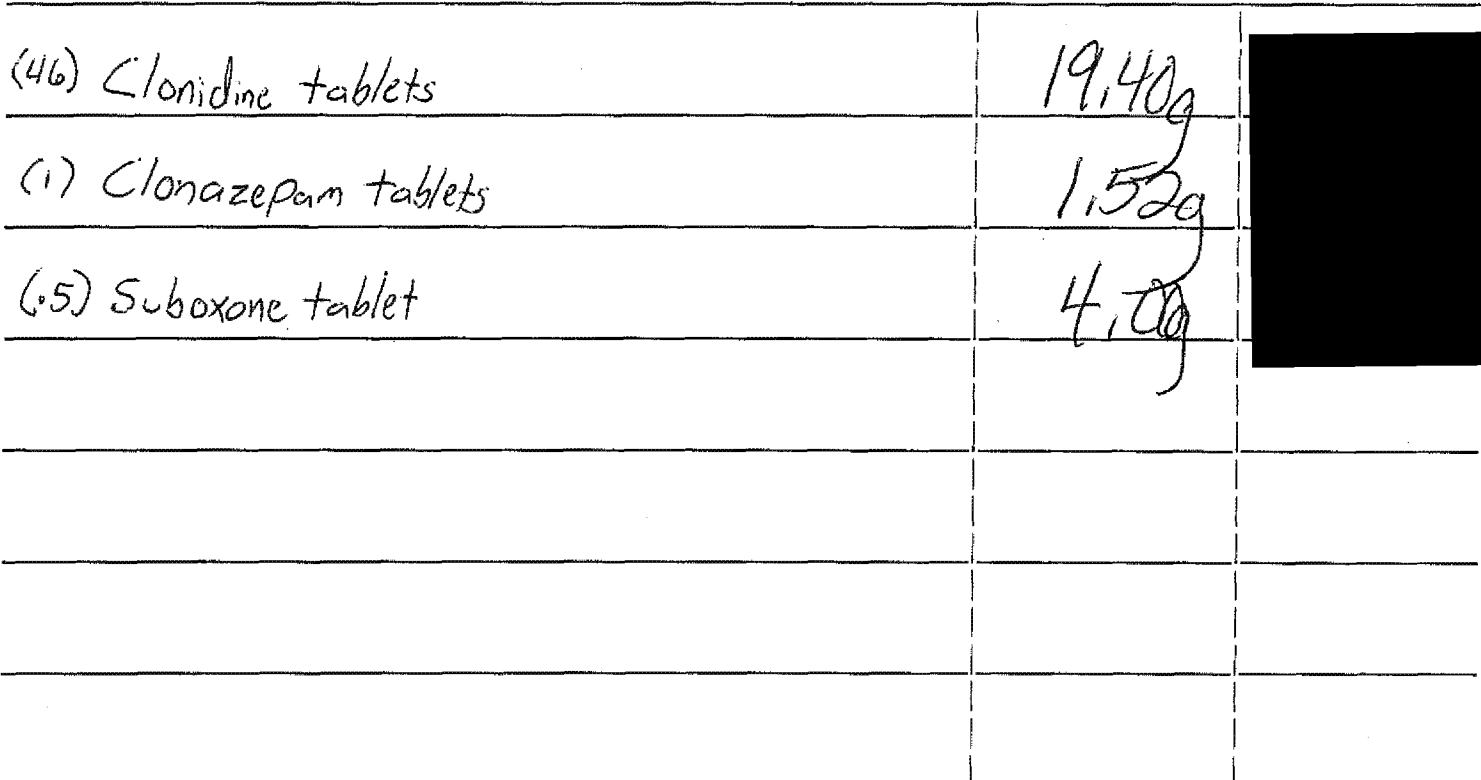 (46) Clonidine tablets 19.40g
(1) Clonazepam tablets 1.52g
(.5) Suboxone tablet